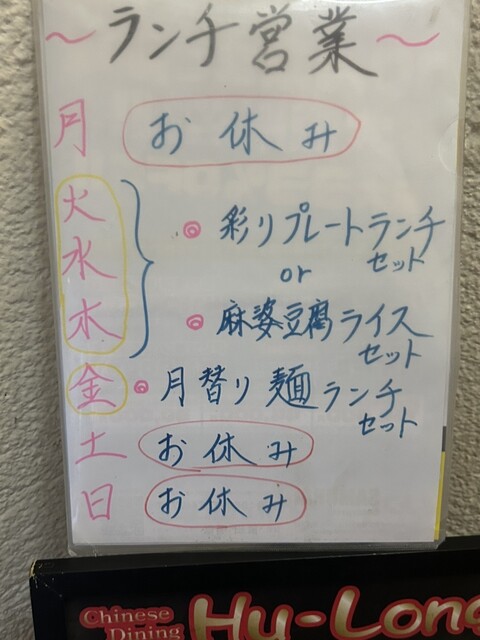 ～ランチ営業～
月 お休み
火 ◎彩りプレートランチセット
水 or
木 ◎麻婆豆腐ライスセット
金 ◎月替り麺ランチセット
土 お休み
日 お休み
Chinese Dining Hy-Long